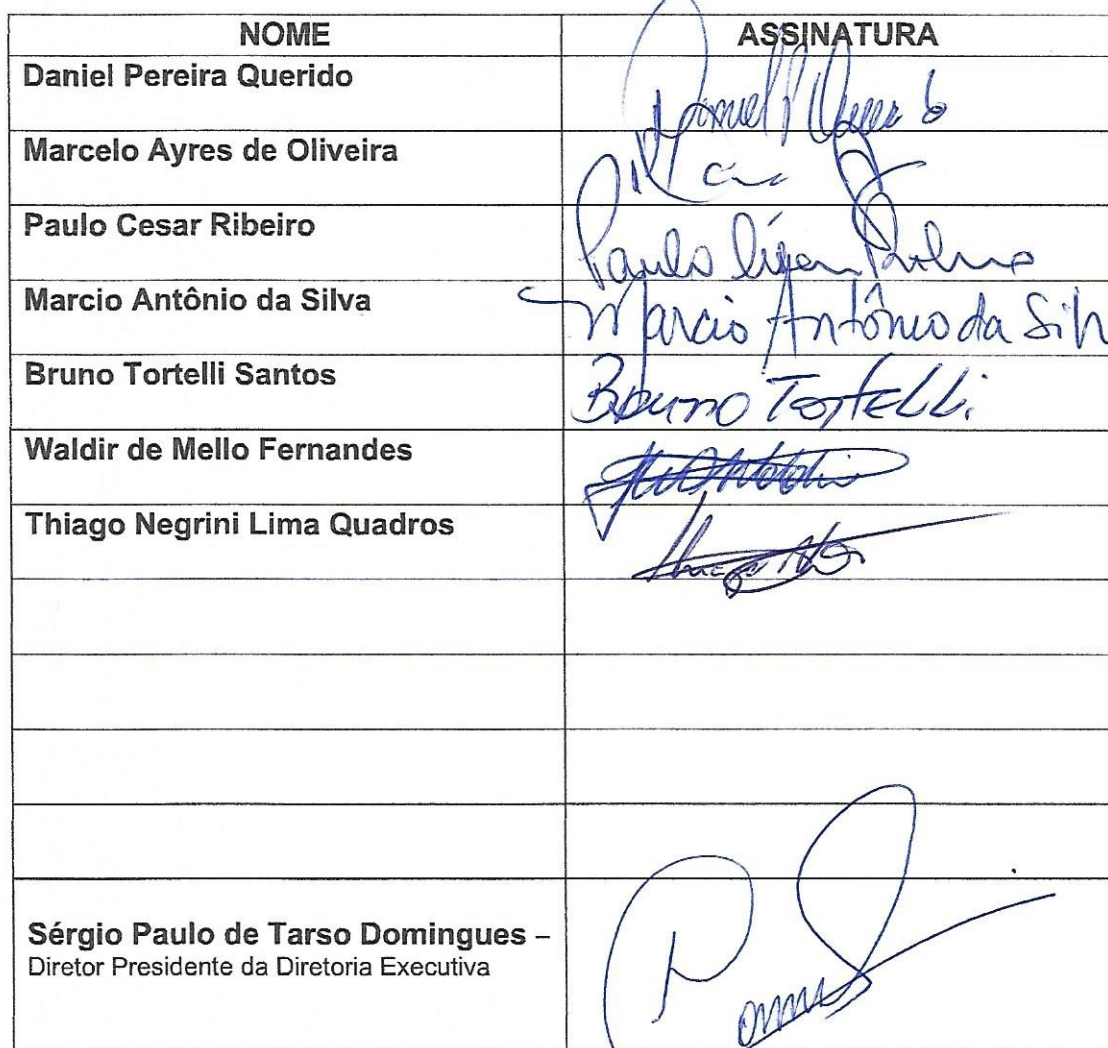 NOME ASSINATURA
Daniel Pereira Querido Daniel P
Marcelo Ayres de Oliveira
Paulo Cesar Ribeiro Paulo César Ribeiro
Marcio Antônio da Silva Marcio Antônio da Silv
Bruno Tortelli Santos Bruno Tortelli
Waldir de Mello Fernandes
Thiago Negrini Lima Quadros
Sérgio Paulo de Tarso Domingues –
Diretor Presidente da Diretoria Executiva